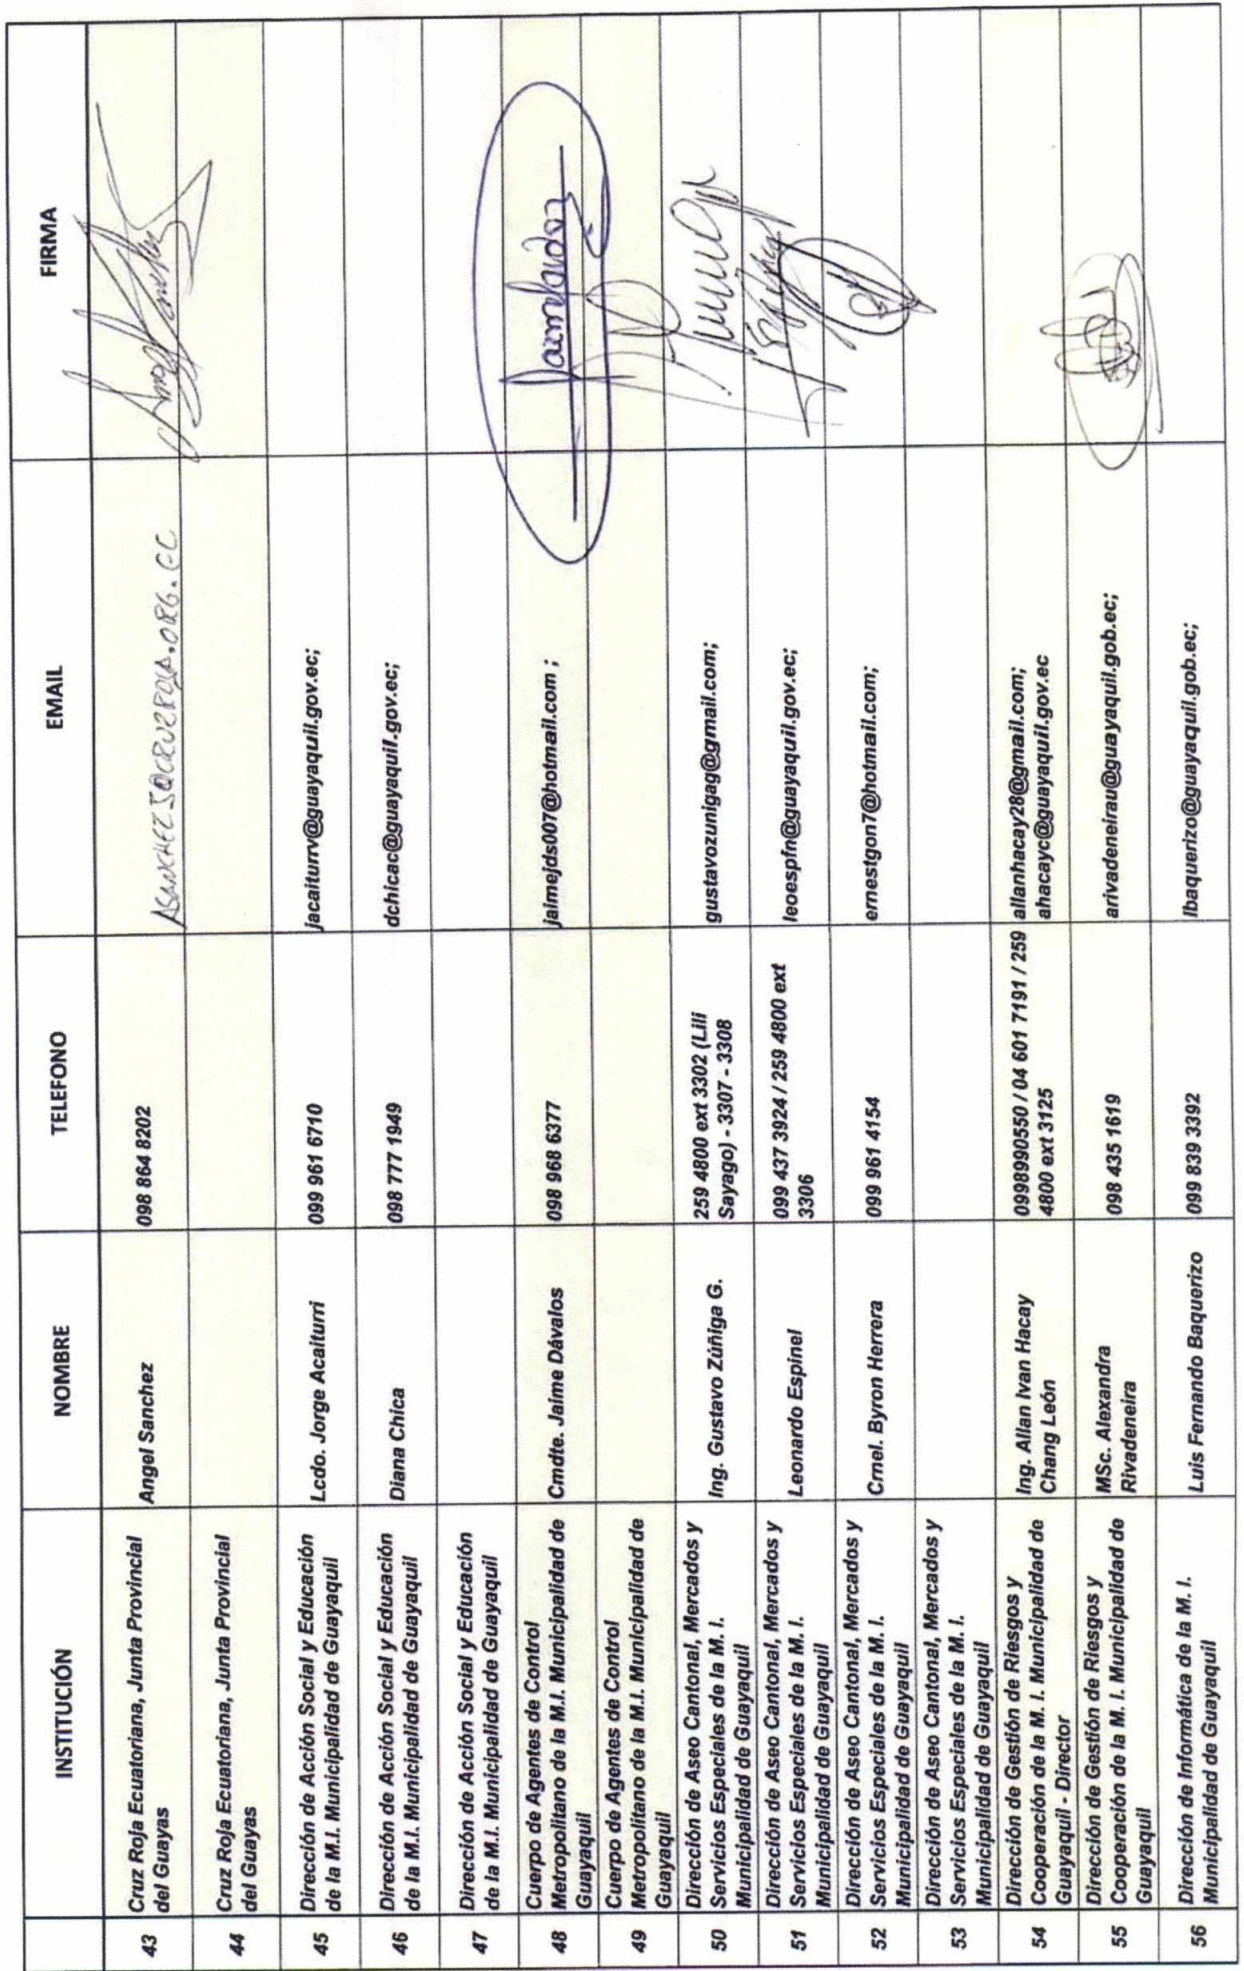 INSTITUCIÓN NOMBRE TELEFONO EMAIL FIRMA
43 Cruz Roja Ecuatoriana, Junta Provincial del Guayas Angel Sanchez 098 864 8202 ASANCHEZS@CRUZROJA.ORG.EC
44 Cruz Roja Ecuatoriana, Junta Provincial del Guayas
45 Dirección de Acción Social y Educación de la M.I. Municipalidad de Guayaquil Lcdo. Jorge Acaiturri 099 961 6710 jacaiturrv@guayaquil.gov.ec;
46 Dirección de Acción Social y Educación de la M.I. Municipalidad de Guayaquil Diana Chica 098 777 1949 dchicac@guayaquil.gov.ec;
47 Dirección de Acción Social y Educación de la M.I. Municipalidad de Guayaquil
48 Cuerpo de Agentes de Control Metropolitano de la M.I. Municipalidad de Guayaquil Cmdte. Jaime Dávalos 098 968 6377 jaimejds007@hotmail.com ;
49 Cuerpo de Agentes de Control Metropolitano de la M.I. Municipalidad de Guayaquil
50 Dirección de Aseo Cantonal, Mercados y Servicios Especiales de la M. I. Municipalidad de Guayaquil Ing. Gustavo Zúñiga G. 259 4800 ext 3302 (Lili Sayago) - 3307 - 3308 gustavozunigag@gmail.com;
51 Dirección de Aseo Cantonal, Mercados y Servicios Especiales de la M. I. Municipalidad de Guayaquil Leonardo Espinel 099 437 3924 / 259 4800 ext 3306 leoespfn@guayaquil.gov.ec;
52 Dirección de Aseo Cantonal, Mercados y Servicios Especiales de la M. I. Municipalidad de Guayaquil Crnel. Byron Herrera 099 961 4154 ernestgon7@hotmail.com;
53 Dirección de Aseo Cantonal, Mercados y Servicios Especiales de la M. I. Municipalidad de Guayaquil
54 Dirección de Gestión de Riesgos y Cooperación de la M. I. Municipalidad de Guayaquil - Director Ing. Allan Ivan Hacay Chang León 0998990550 / 04 601 7191 / 259 4800 ext 3125 allanhacay28@gmail.com; ahacayc@guayaquil.gov.ec
55 Dirección de Gestión de Riesgos y Cooperación de la M. I. Municipalidad de Guayaquil MSc. Alexandra Rivadeneira 098 435 1619 arivadeneirau@guayaquil.gob.ec;
56 Dirección de Informática de la M. I. Municipalidad de Guayaquil Luis Fernando Baquerizo 099 839 3392 lbaquerizo@guayaquil.gob.ec;